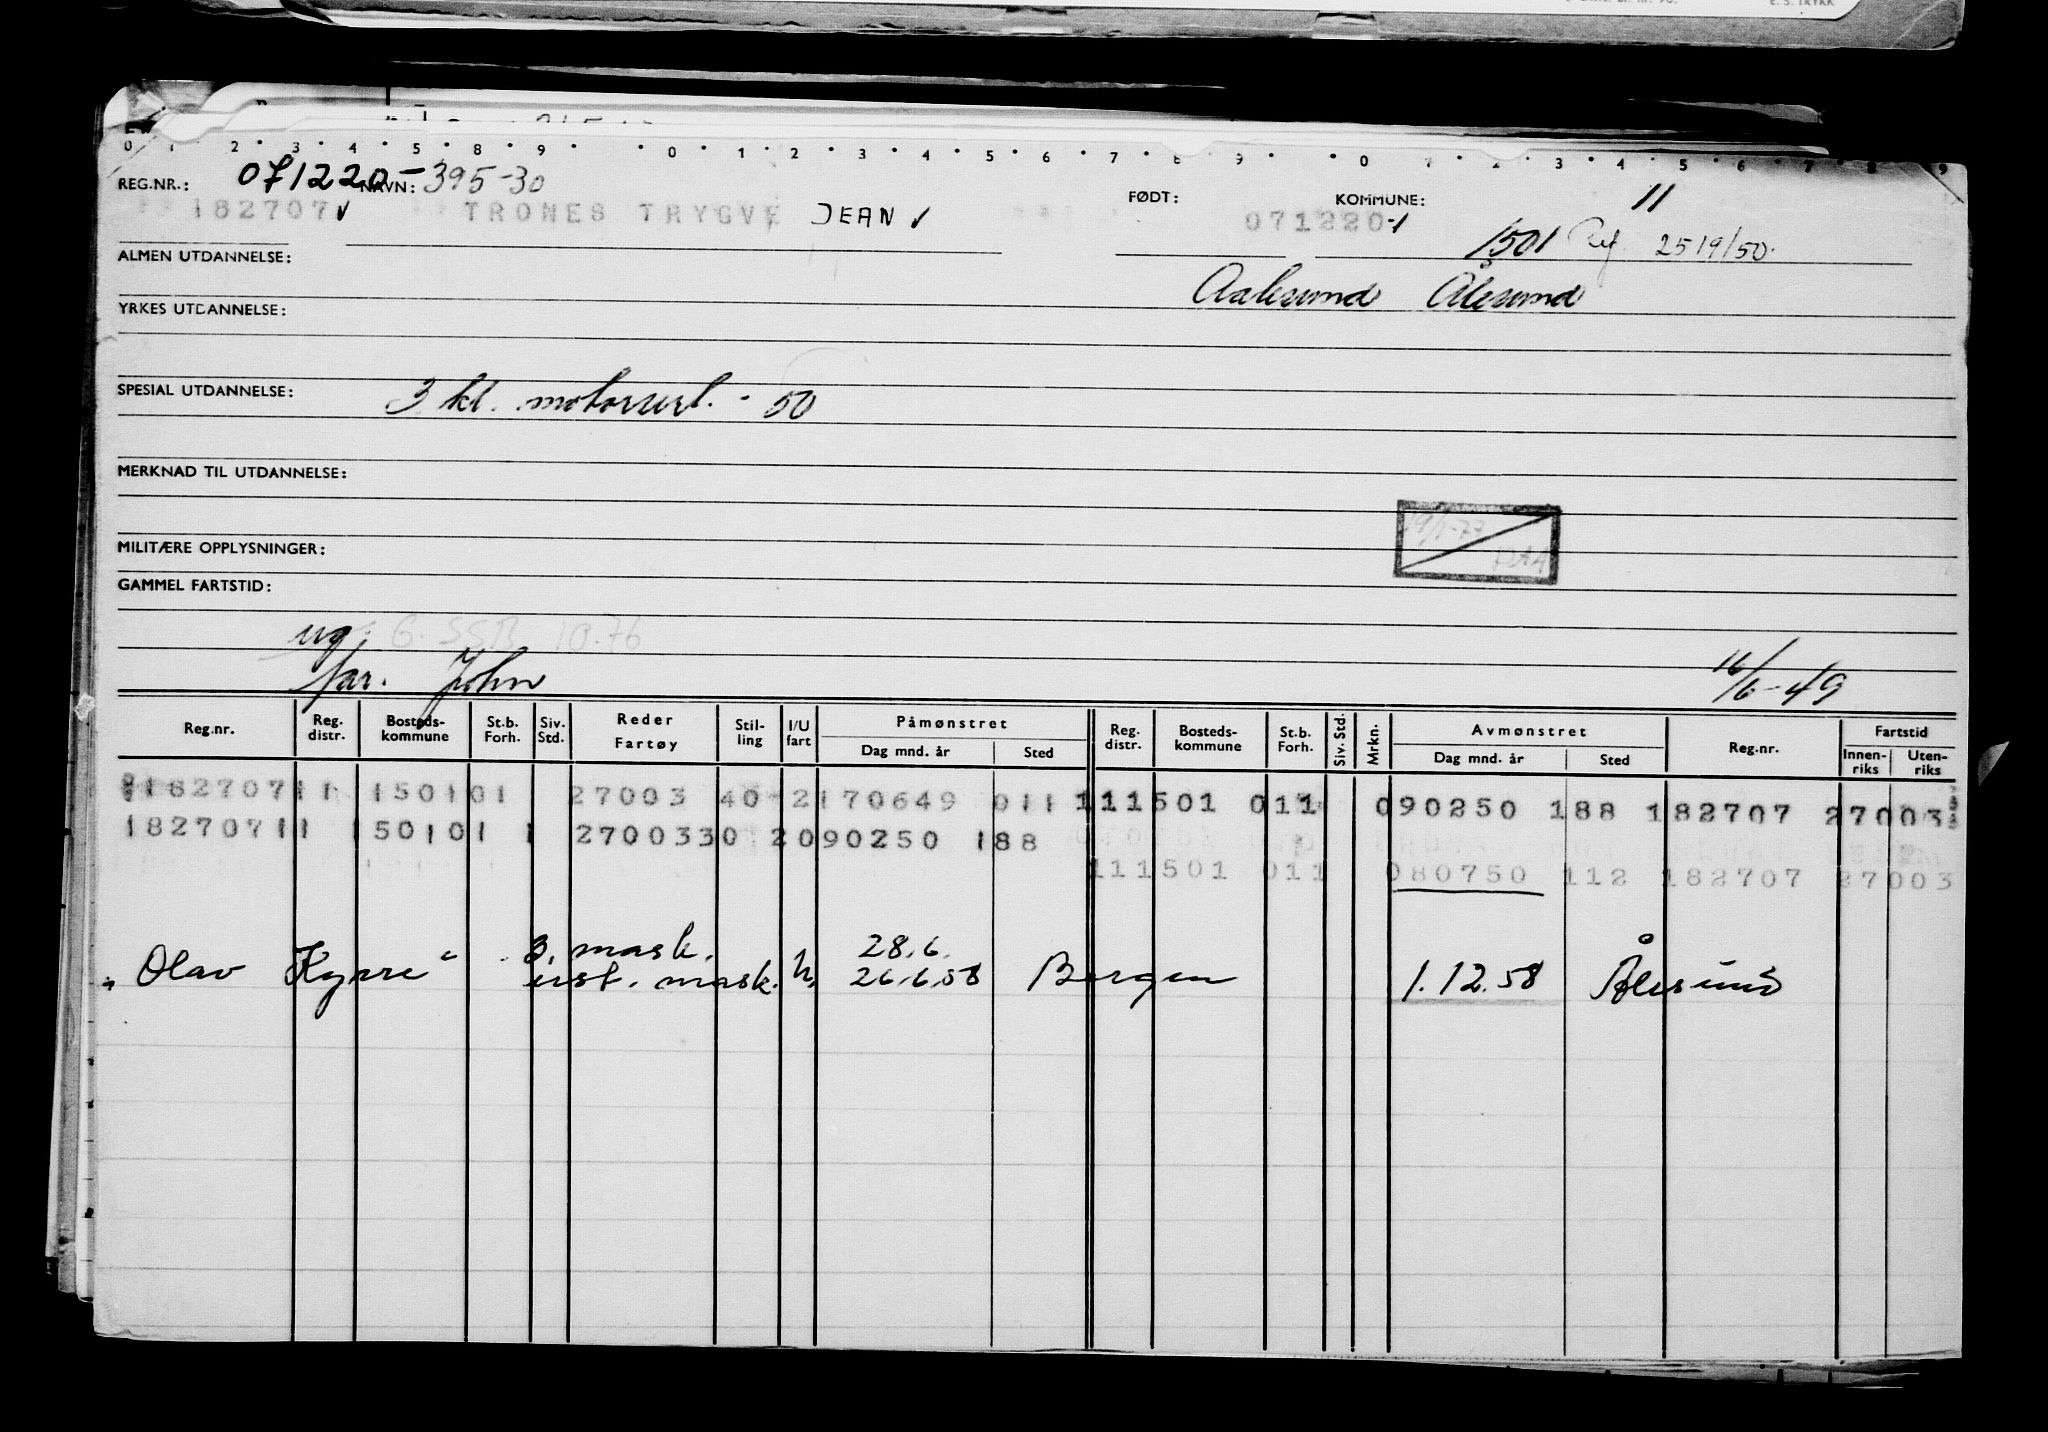 E. S. TRYKK
0 1 2 3 4 5 8 9 0 1 2 3 4 5 6 7 8 9 0 1 2 3 4 5 6 7 8 9
REG.NR.: 071220- NAVN: 395-30 FØDT: KOMMUNE: 11
182707 TRONES TRYGVE JEAN 071220-1
1501 Ref. 2519/50.
ALMEN UTDANNELSE:
Aalesund Ålesund
YRKES UTDANNELSE:
SPESIAL UTDANNELSE: 3 kl. motorsert. - 50
MERKNAD TIL UTDANNELSE:
MILITÆRE OPPLYSNINGER:
GAMMEL FARTSTID:
ug. G. SSB 10.76
far. John 16/6-49
Reg.nr. Reg. distr. Bosteds-kommune St.b. Forh. Siv. Std. Reder Fartøy Stil-ling I/U fart Påmønstret Dag mnd. år Sted Reg. distr. Bosteds-kommune St.b. Forh. Siv. Std. Mrkn. Avmønstret Dag mnd. år Sted Reg.nr. Fartstid Innen-riks Uten-riks
182707 11 1501 01 1 27003 40-2 170649 011 11 1501 011 090250 188 182707 27003
182707 11 1501 01 1 27003 30 2 090250 188
11 1501 011 080750 112 182707 27003
3. mask. 28.6.
"Olav Kyrre" ust. mask. U. 26.6.58 Bergen 1.12.58 Ålesund